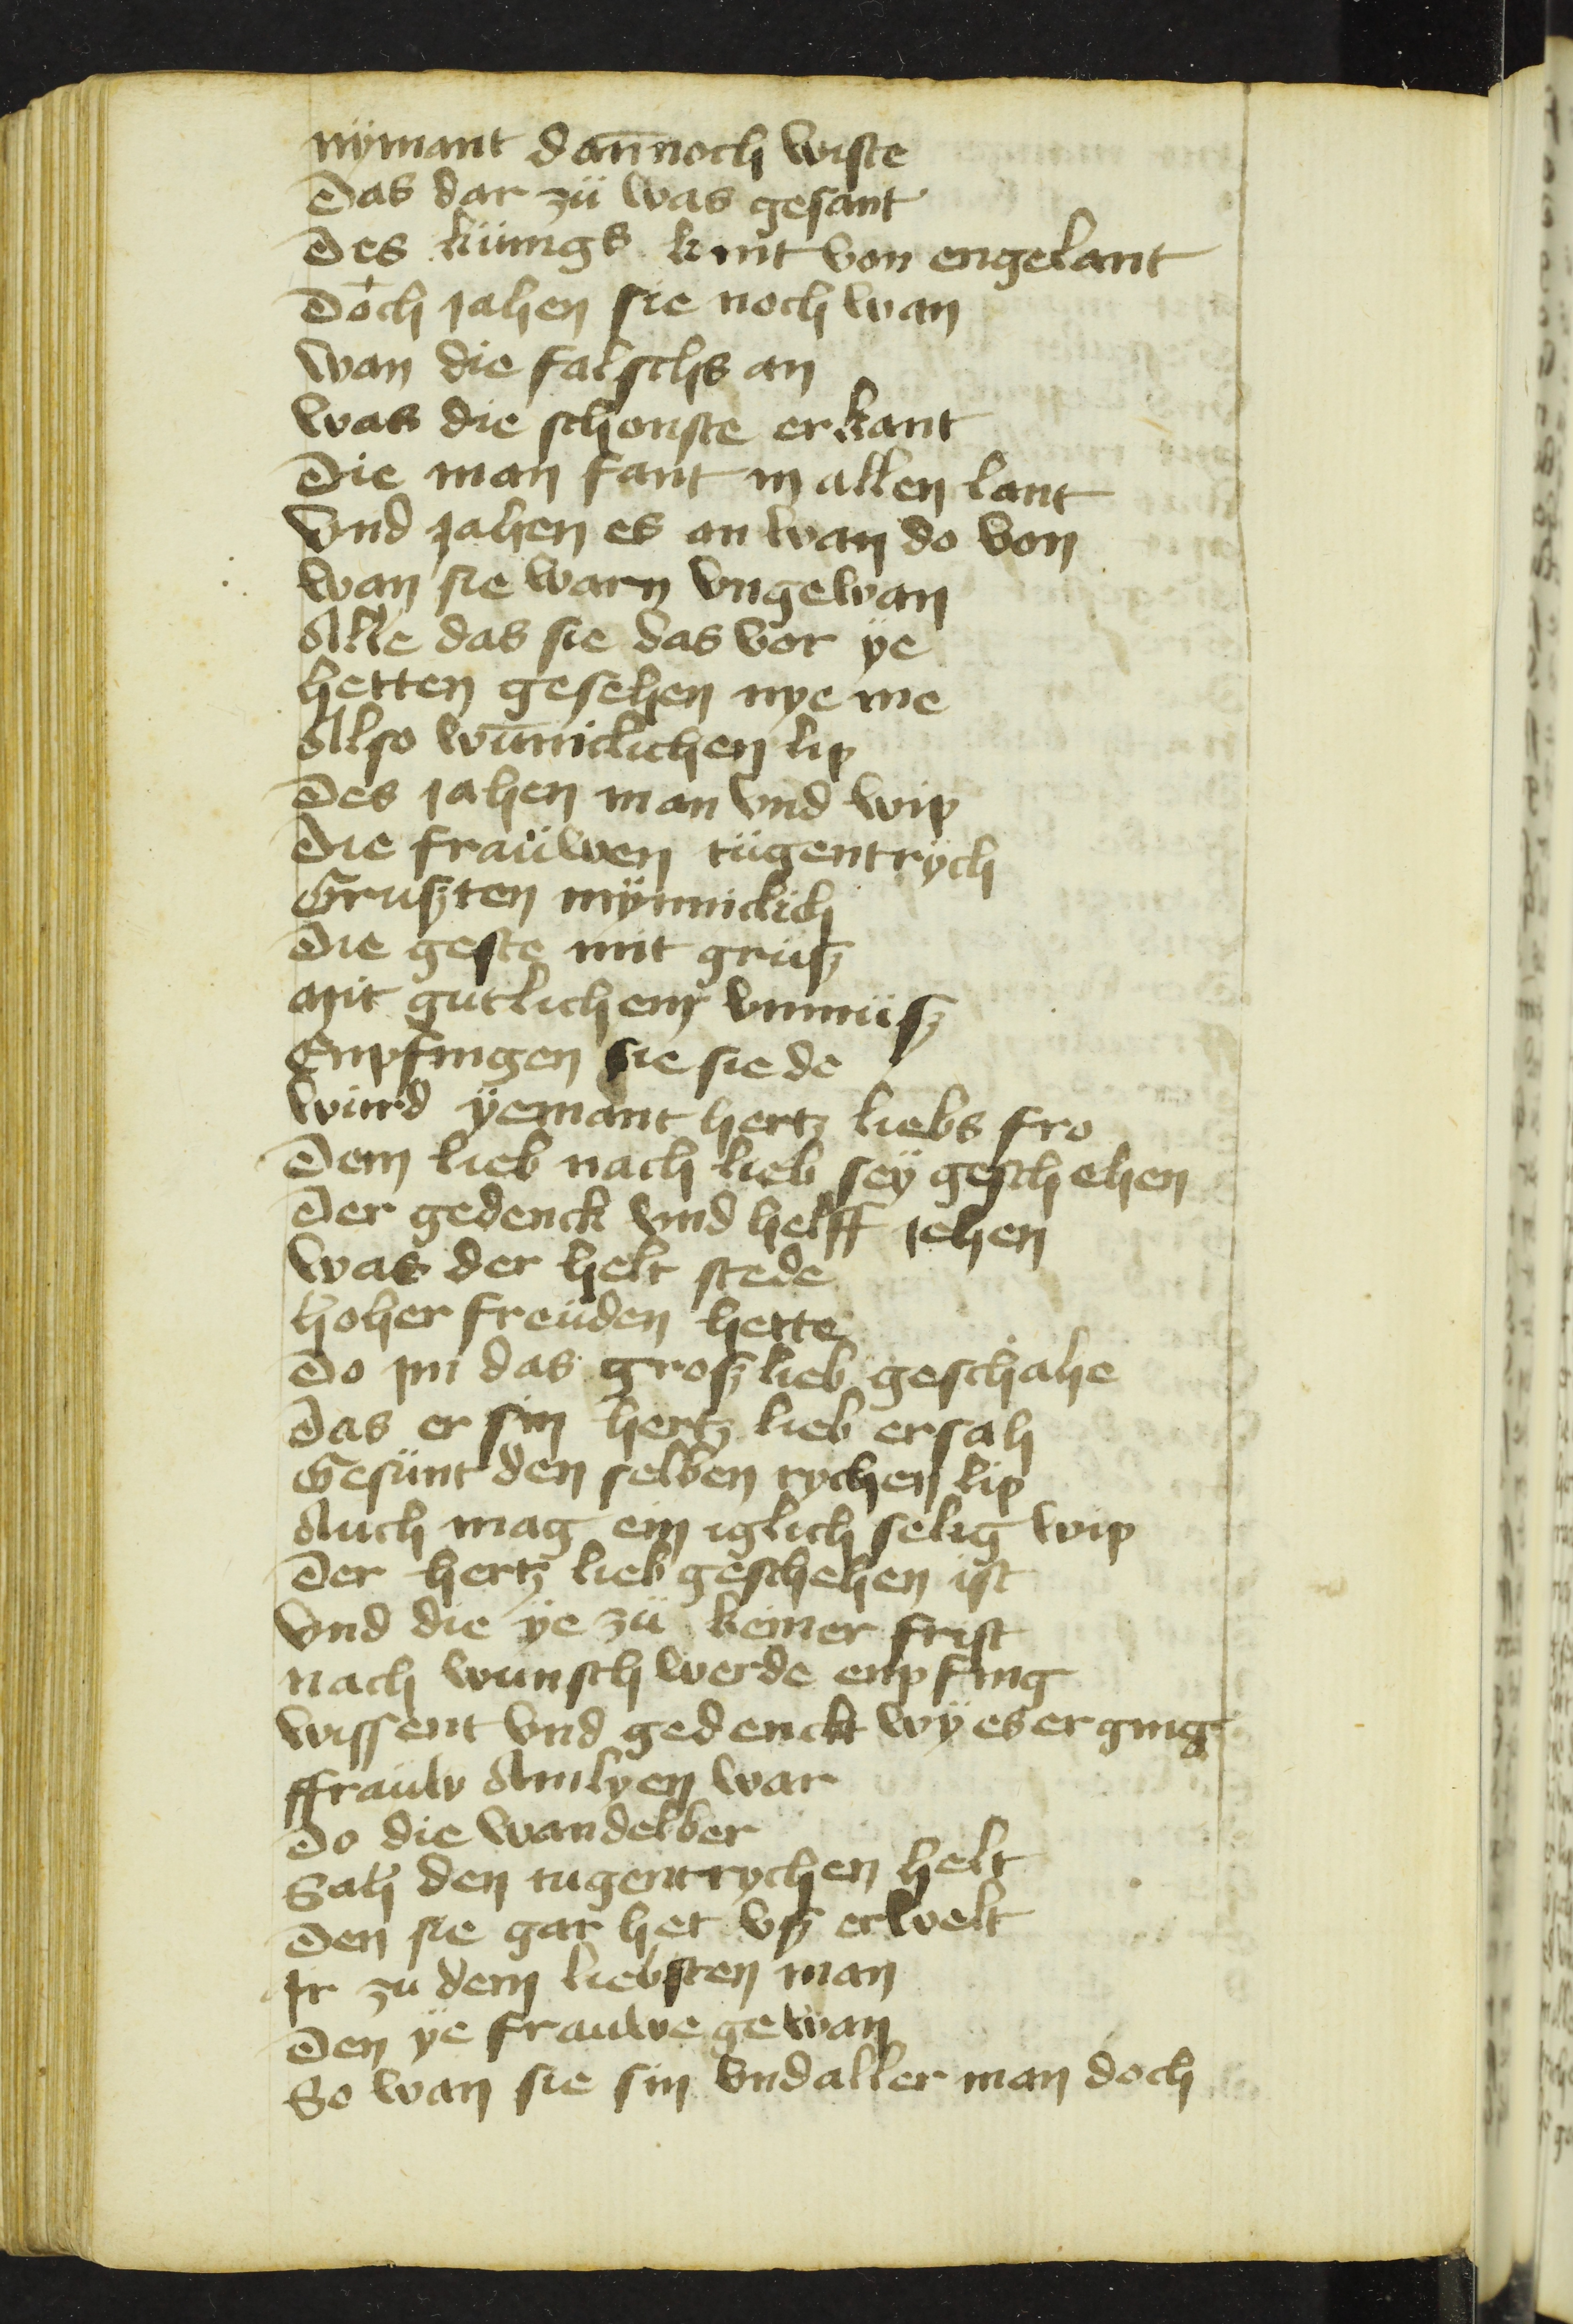 nÿmant dan̄noch wiste
Das dar zü was gesant
Des küngs kint von engelant
Doch jahen sie noch wan
wan die falschs an
was die schonste erkant
Die man fant in allen lant
Vnd jahen es an wan do von
wan sie warn vngewan
Alle das sie das vor ÿe
hetten gesehen nye me
Also wūniclichen lip
Des jahen man vnd wip
Die fraüwen tügentrÿch
Gruszten mÿnniclich
Die geste mit grüsz
Mit gutlichem vnmüsz
Enpfingen sie sie de
würd ÿemant hertz liebs fro
Dem lieb nach lieb seÿ geschehen
Der gedenck vnd helff jehen
was der helt stede
hoher freüden hette
Do jm das grosz lieb geschahe
Das er sin hertz lieb ersah
Gesünt den selben rychen lip
Auch mag ein iglich selig wip
Der hertz lieb geschehen ist
Vnd die ÿe zü keiner frist
nach wunsch werde enpfing
wissent vnd gedenckt wÿ es erging
ffrauw Amlyen war
Do die wandelber
Sah den tugentrychen helt
Den sie gar het vsz erwelt
Ir zu dem liebsten man
Den ÿe frauwe gewan
So wan sie sin vnd aller man doch